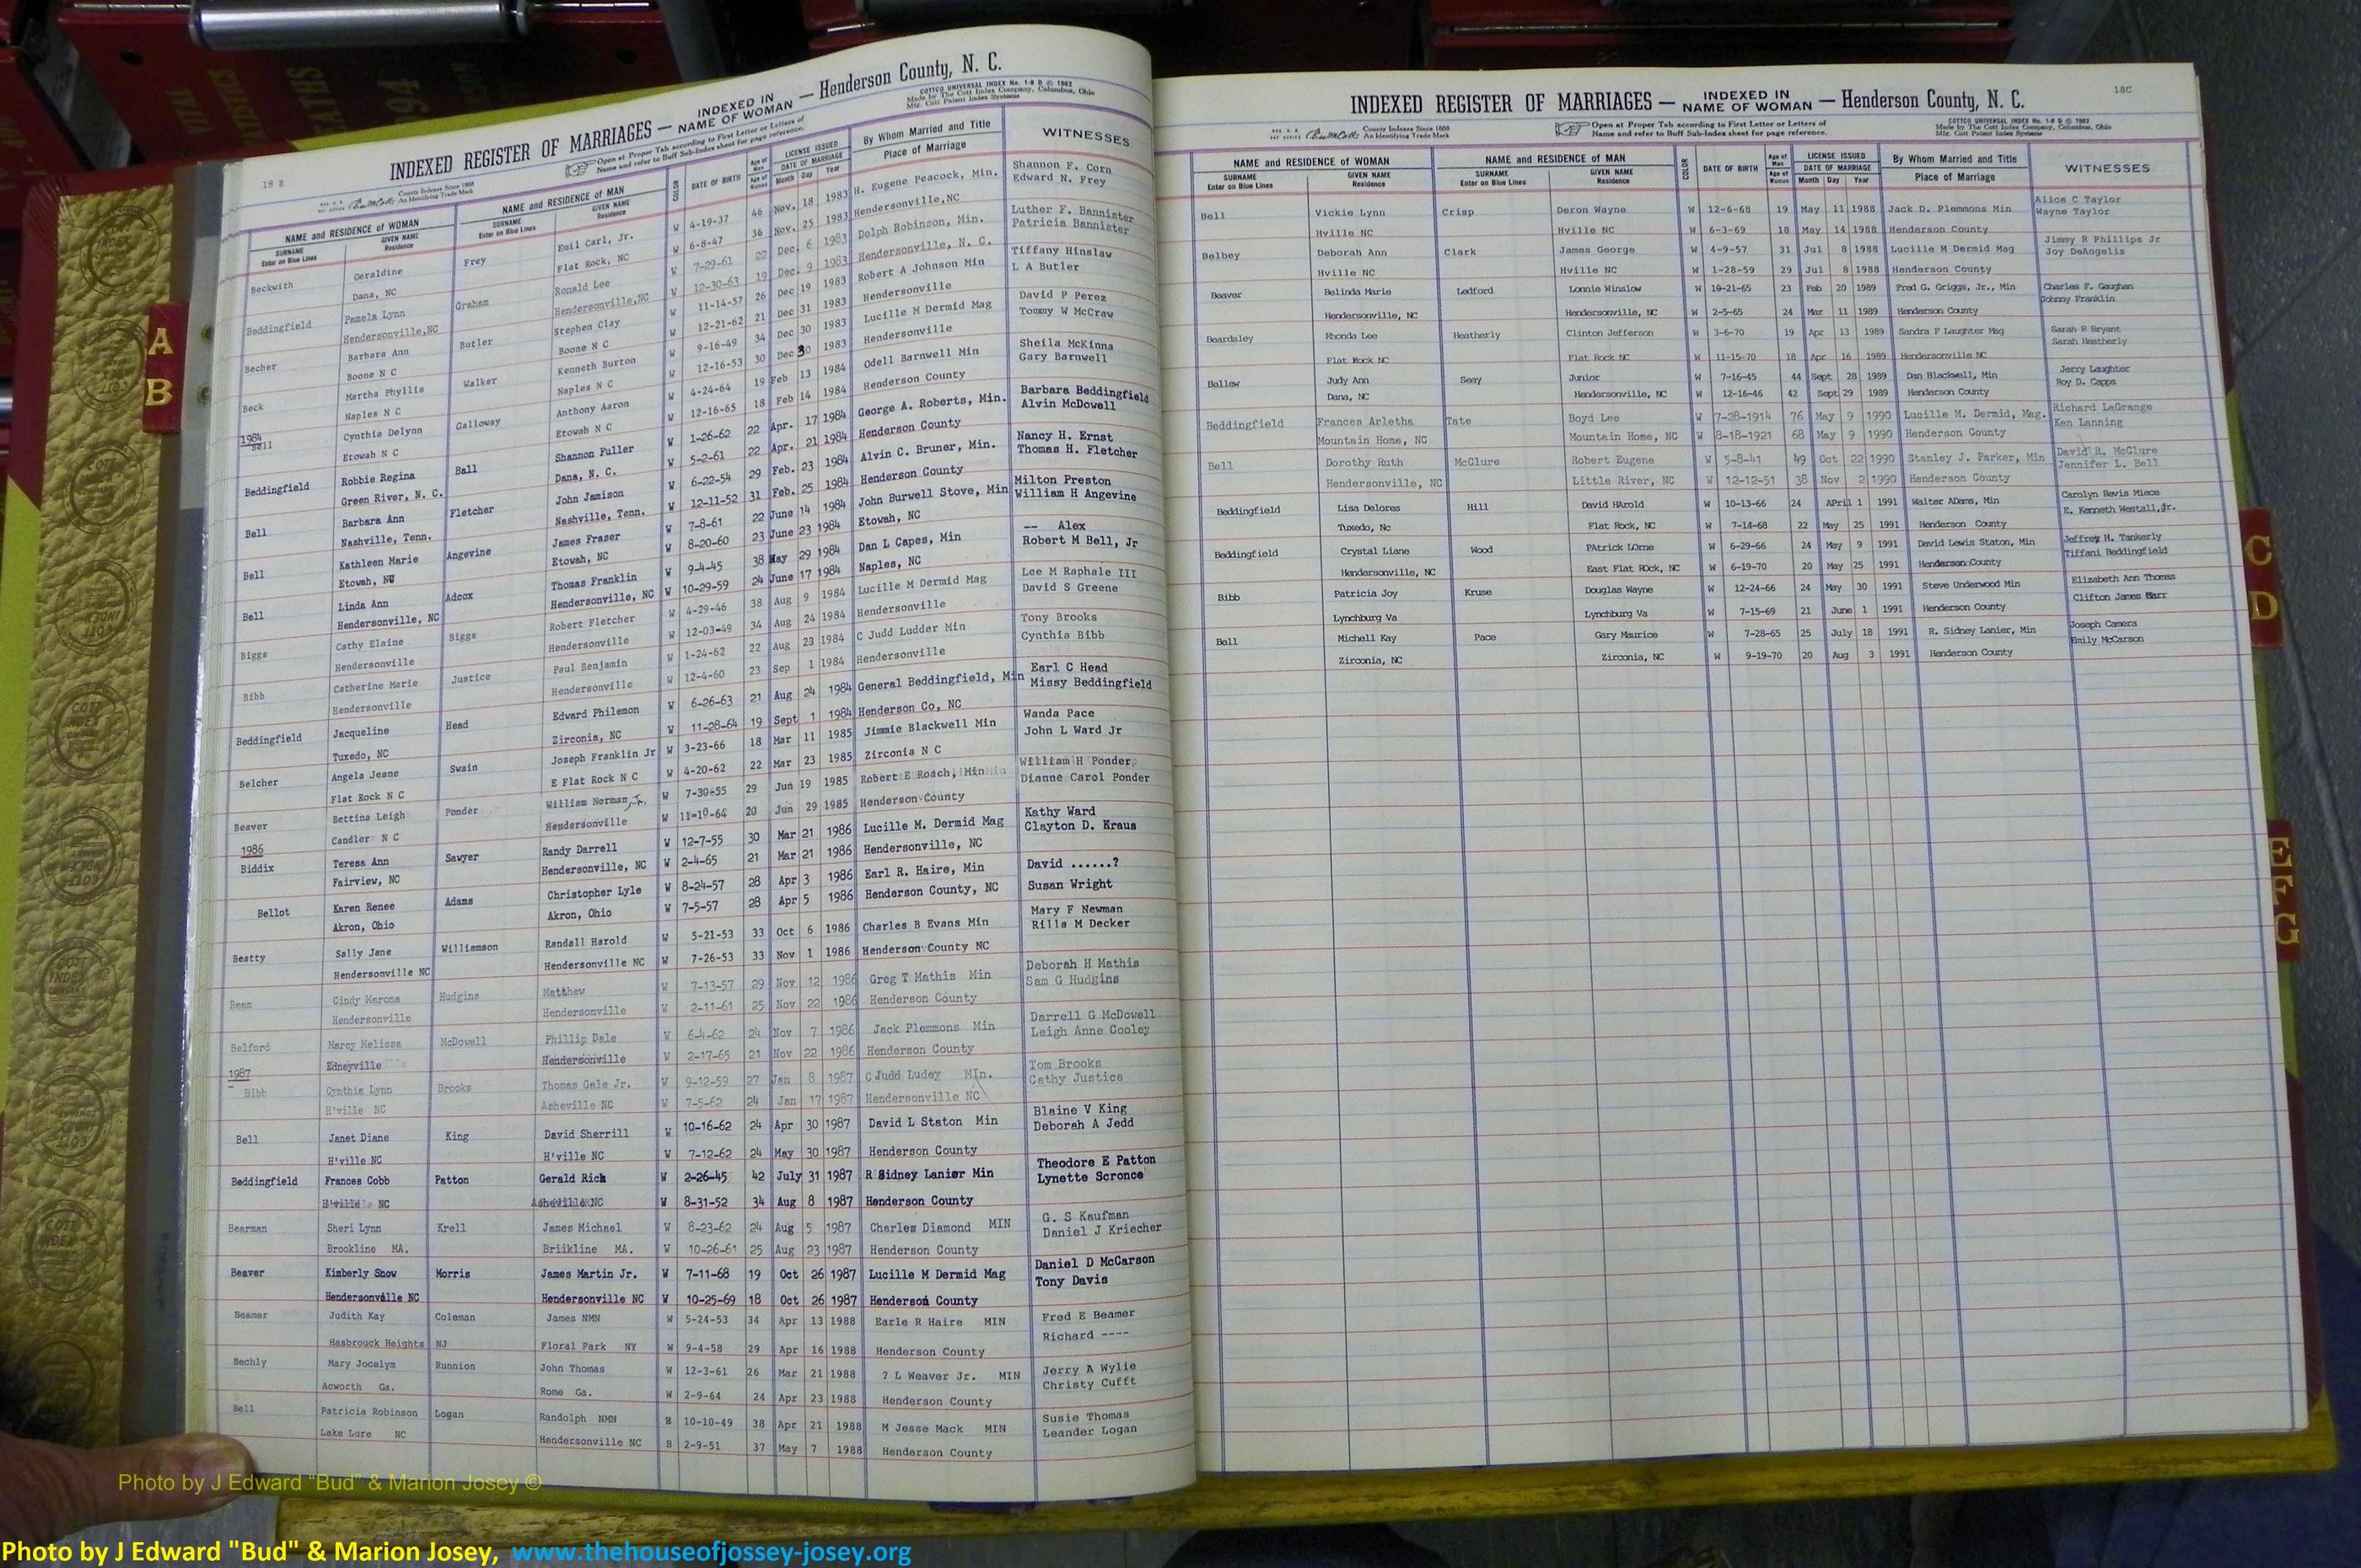 INDEXED REGISTER OF MARRIAGES — INDEXED IN NAME OF WOMAN — Henderson County, N. C.
18 B
County Indexes Since 1888
An Identifying Trade Mark
Open at Proper Tab according to First Letter or Letters of
Name and refer to Buff Sub-Index sheet for page reference.
COTTCO UNIVERSAL INDEX No. 1-8 B © 1962
Made by The Cott Index Company, Columbus, Ohio
Mfg. Cott Patent Index Systems
NAME and RESIDENCE OF WOMAN NAME and RESIDENCE OF MAN COLOR DATE OF BIRTH Age of Man Age of Woman LICENSE ISSUED DATE OF MARRIAGE By Whom Married and Title WITNESSES
SURNAME Enter on Blue Lines GIVEN NAME Residence SURNAME Enter on Blue Lines GIVEN NAME Residence Month Day Year Place of Marriage
Beckwith Geraldine Frey Emil Carl, Jr. W 4-19-37 46 Nov. 18 1983 H. Eugene Peacock, Min. Shannon F. Corn
Dana, NC Flat Rock, NC W 6-8-47 36 Nov. 25 1983 Hendersonville,NC Edward N. Frey
Beddingfield Pamela Lynn Graham Ronald Lee W 7-29-61 22 Dec. 6 1983 Dolph Robinson, Min. Luther F. Bannister
Hendersonville,NC Hendersonville,NC W 12-30-63 19 Dec. 9 1983 Hendersonville, N. C. Patricia Bannister
Becher Barbara Ann Butler Stephen Clay W 11-14-57 26 Dec 19 1983 Robert A Johnson Min Tiffany Hinslaw
Boone N C Boone N C W 12-21-62 21 Dec 31 1983 Hendersonville L A Butler
Beck Martha Phyllis Walker Kenneth Burton W 9-16-49 34 Dec 30 1983 Lucille M Dermid Mag David P Perez
Naples N C Naples N C W 12-16-53 30 Dec 30 1983 Hendersonville Tommy W McCraw
1984
Bell Cynthia Delynn Galloway Anthony Aaron W 4-24-64 19 Feb 13 1984 Odell Barnwell Min Sheila McKinna
Etowah N C Etowah N C W 12-16-65 18 Feb 14 1984 Henderson County Gary Barnwell
Beddingfield Robbie Regina Ball Shannon Fuller W 1-26-62 22 Apr. 17 1984 George A. Roberts, Min. Barbara Beddingfield
Green River, N. C. Dana, N. C. W 5-2-61 22 Apr. 21 1984 Henderson County Alvin McDowell
Bell Barbara Ann Fletcher John Jamison W 6-22-54 29 Feb. 23 1984 Alvin C. Bruner, Min. Nancy H. Ernst
Nashville, Tenn. Nashville, Tenn. W 12-11-52 31 Feb. 25 1984 Henderson County Thomas H. Fletcher
Bell Kathleen Marie Angevine James Fraser W 7-8-61 22 June 14 1984 John Burwell Stove, Min Milton Preston
Etowah, NC Etowah, NC W 8-20-60 23 June 23 1984 Etowah, NC William H Angevine
Bell Linda Ann Adcox Thomas Franklin W 9-4-45 38 May 29 1984 Dan L Capes, Min -- Alex
Hendersonville, NC Hendersonville, NC W 10-29-59 24 June 17 1984 Naples, NC Robert M Bell, Jr
Biggs Cathy Elaine Biggs Robert Fletcher W 4-29-46 38 Aug 9 1984 Lucille M Dermid Mag Lee M Raphale III
Hendersonville Hendersonville W 12-03-49 34 Aug 24 1984 Hendersonville David S Greene
Bibb Catherine Marie Justice Paul Benjamin W 1-24-62 22 Aug 23 1984 C Judd Ludder Min Tony Brooks
Hendersonville Hendersonville W 12-4-60 23 Sep 1 1984 Hendersonville Cynthia Bibb
Beddingfield Jacqueline Head Edward Philemon W 6-26-63 21 Aug 24 1984 General Beddingfield, Min Earl C Head
Tuxedo, NC Zirconia, NC W 11-28-64 19 Sept 1 1984 Henderson Co, NC Missy Beddingfield
Belcher Angela Jeane Swain Joseph Franklin Jr W 3-23-66 18 Mar 11 1985 Jimmie Blackwell Min Wanda Pace
Flat Rock N C E Flat Rock N C W 4-20-62 22 Mar 23 1985 Zirconia N C John L Ward Jr
Beaver Bettina Leigh Ponder William Norman Jr. W 7-30-55 29 Jun 19 1985 Robert E Roach, Min William H Ponder
Candler N C Hendersonville W 11-10-64 20 Jun 29 1985 Henderson County Dianne Carol Ponder
1986
Biddix Teresa Ann Sawyer Randy Darrell W 12-7-55 30 Mar 21 1986 Lucille M. Dermid Mag Kathy Ward
Fairview, NC Hendersonville, NC W 2-4-65 21 Mar 21 1986 Hendersonville, NC Clayton D. Kraus
Bellot Karen Renee Adams Christopher Lyle W 8-24-57 28 Apr 3 1986 Earl R. Haire, Min David ......?
Akron, Ohio Akron, Ohio W 7-5-57 28 Apr 5 1986 Henderson County, NC Susan Wright
Beatty Sally Jane Williamson Randall Harold W 5-21-53 33 Oct 6 1986 Charles B Evans Min Mary F Newman
Hendersonville NC Hendersonville NC W 7-26-53 33 Nov 1 1986 Henderson County NC Rilla M Decker
Bean Cindy Marona Hudgins Matthew W 7-13-57 29 Nov 12 1986 Greg T Mathis Min Deborah H Mathis
Hendersonville Hendersonville W 2-11-61 25 Nov 22 1986 Henderson County Sam G Hudgins
Belford Marcy Melissa McDowell Phillip Dale W 6-4-62 24 Nov 7 1986 Jack Plemmons Min Darrell G McDowell
Edneyville Hendersonville W 2-17-65 21 Nov 22 1986 Henderson County Leigh Anne Cooley
1987
Bibb Cynthia Lynn Brooks Thomas Gale Jr. W 9-12-59 27 Jan 8 1987 C Judd Ludey MIn. Tom Brooks
H'ville NC Asheville NC W 7-5-62 24 Jan 17 1987 Hendersonville NC Cathy Justice
Bell Janet Diane King David Sherrill W 10-16-62 24 Apr 30 1987 David L Staton Min Blaine V King
H'ville NC H'ville NC W 7-12-62 24 May 30 1987 Henderson County Deborah A Jedd
Beddingfield Frances Cobb Patton Gerald Rich W 2-26-45 42 July 31 1987 R Sidney Lanier Min Theodore E Patton
H'ville NC Asheville NC W 8-31-52 34 Aug 8 1987 Henderson County Lynette Scronce
Bearman Sheri Lynn Krell James Michael W 8-23-62 24 Aug 5 1987 Charles Diamond MIN G. S Kaufman
Brookline MA. Briikline MA. W 10-26-61 25 Aug 23 1987 Henderson County Daniel J Kriecher
Beaver Kimberly Snow Morris James Martin Jr. W 7-11-68 19 Oct 26 1987 Lucille M Dermid Mag Daniel D McCarson
Hendersonville NC Hendersonville NC W 10-25-69 18 Oct 26 1987 Henderson County Tony Davis
Beamer Judith Kay Coleman James NMN W 5-24-53 34 Apr 13 1988 Earle R Haire MIN Fred E Beamer
Hasbrouck Heights NJ Floral Park NY W 9-4-58 29 Apr 16 1988 Henderson County Richard ----
Bechly Mary Jocelym Runnion John Thomas W 12-3-61 26 Mar 21 1988 ? L Weaver Jr. MIN Jerry A Wylie
Acworth Ga. Rome Ga. W 2-9-64 24 Apr 23 1988 Henderson County Christy Cufft
Bell Patricia Robinson Logan Randolph NMN B 10-10-49 38 Apr 21 1988 M Jesse Mack MIN Susie Thomas
Lake Lure NC Hendersonville NC B 2-9-51 37 May 7 1988 Henderson County Leander Logan
18C
INDEXED REGISTER OF MARRIAGES — INDEXED IN NAME OF WOMAN — Henderson County, N. C.
County Indexes Since 1888
An Identifying Trade Mark
Open at Proper Tab according to First Letter or Letters of
Name and refer to Buff Sub-Index sheet for page reference.
COTTCO UNIVERSAL INDEX No. 1-8 B © 1962
Made by The Cott Index Company, Columbus, Ohio
Mfg. Cott Patent Index Systems
NAME and RESIDENCE OF WOMAN NAME and RESIDENCE OF MAN COLOR DATE OF BIRTH Age of Man Age of Woman LICENSE ISSUED DATE OF MARRIAGE By Whom Married and Title WITNESSES
SURNAME Enter on Blue Lines GIVEN NAME Residence SURNAME Enter on Blue Lines GIVEN NAME Residence Month Day Year Place of Marriage
Bell Vickie Lynn Crisp Deron Wayne W 12-6-68 19 May 11 1988 Jack D. Plemmons Min Alice C Taylor
Hville NC Hville NC W 6-3-69 18 May 14 1988 Henderson County Wayne Taylor
Belbey Deborah Ann Clark James George W 4-9-57 31 Jul 8 1988 Lucille M Dermid Mag Jimmy R Phillips Jr
Hville NC Hville NC W 1-28-59 29 Jul 8 1988 Henderson County Joy DeAngelis
Beaver Belinda Marie Ledford Lonnie Winslow W 10-21-65 23 Feb 20 1989 Fred G. Griggs, Jr., Min Charles F. Gaughan
Hendersonville, NC Hendersonville, NC W 2-5-65 24 Mar 11 1989 Henderson County Johnny Franklin
Beardsley Rhonda Lee Heatherly Clinton Jefferson W 3-6-70 19 Apr 13 1989 Sandra F Laughter Mag Sarah R Bryant
Flat Rock NC Flat Rock NC W 11-15-70 18 Apr 16 1989 Hendersonville NC Sarah Heatherly
Ballew Judy Ann Seay Junior W 7-16-45 44 Sept 28 1989 Dan Blackwell, Min Jerry Laughter
Dana, NC Hendersonville, NC W 12-16-46 42 Sept 29 1989 Henderson County Roy D. Capps
Beddingfield Frances Arletha Tate Boyd Lee W 7-28-1914 76 May 9 1990 Lucille M. Dermid, Mag. Richard LaGrange
Mountain Home, NC Mountain Home, NC W 8-18-1921 68 May 9 1990 Henderson County Ken Lanning
Bell Dorothy Ruth McClure Robert Eugene W 5-8-41 49 Oct 22 1990 Stanley J. Parker, Min David R. McClure
Hendersonville, NC Little River, NC W 12-12-51 38 Nov 2 1990 Henderson County Jennifer L. Bell
Beddingfield Lisa Delores Hill David HArold W 10-13-66 24 APril 1 1991 Walter ADams, Min Carolyn Revis Miece
Tuxedo, Nc Flat Rock, NC W 7-14-68 22 May 25 1991 Henderson County E. Kenneth Westall,Jr.
Beddingfield Crystal Liane Wood PAtrick LOrne W 6-29-66 24 May 9 1991 David Lewis Staton, Min Jeffrey H. Tankerly
Hendersonville, NC East Flat ROck, NC W 6-19-70 20 May 25 1991 Henderson County Tiffani Beddingfield
Bibb Patricia Joy Kruse Douglas Wayne W 12-24-66 24 May 30 1991 Steve Underwood Min Elizabeth Ann Thomas
Lynchburg Va Lynchburg Va W 7-15-69 21 June 1 1991 Henderson County Clifton James Marr
Bell Michell Kay Pace Gary Maurice W 7-28-65 25 July 18 1991 R. Sidney Lanier, Min Joseph Camera
Zirconia, NC Zirconia, NC W 9-19-70 20 Aug 3 1991 Henderson County Emily McCarson
A
B
C
D
E
F
G
Photo by J Edward "Bud" & Marion Josey ©
Photo by J Edward "Bud" & Marion Josey, www.thehouseofjossey-josey.org